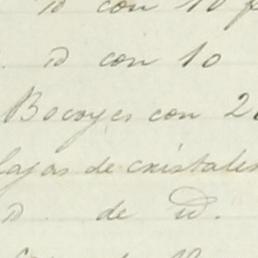 id con 10
id con 10
Bocoyes con 2
cajas de cristales
id de id.